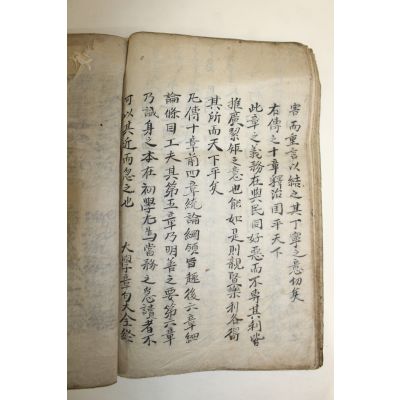 害而重言以結之其丁寧之意切矣
右傳之十章釋治国平天下
此章之義務在與民同好惡而不專其利皆
推廣絜矩之意也能如是則親賢樂利各得
其所而天下平矣
凡傳十章前四章統論綱領旨趣後六章細
論條目工夫其第五章乃明善之要第六章
乃誠身之本在初學尤為當務之急讀者不
可以其近而忽之也　大學章句大全終